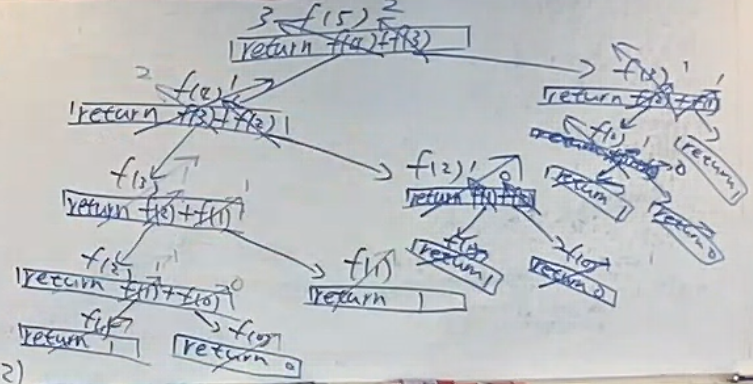 3 f(5) 2
return f(4)+f(3)
2 f(4) 1
return f(3)+f(2)
f(3) 1
return f(2)+f(1)
f(2) 1
return f(1)+f(0) 0
f(1)
return 1
f(0)
return 0
f(1)
return 1
f(2) 1
return f(1)+f(0) 0
f(1)
return 1
f(0)
return 0
f(3) 1
return f(2)+f(1) 1
f(2) 1
0
return 1
return 0
return 1
2)